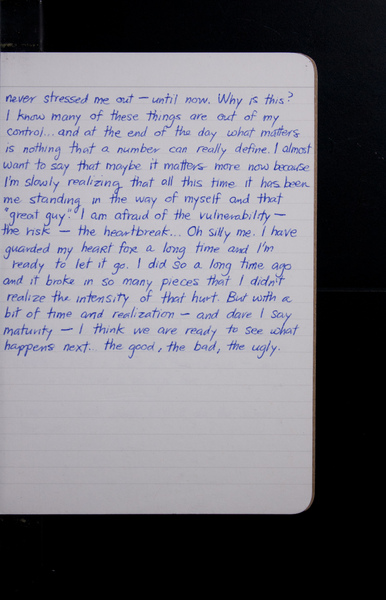 never stressed me out — until now. Why is this?
I know many of these things are out of my
control... and at the end of the day what matters
is nothing that a number can really define. I almost
want to say that maybe it matters more now because
I'm slowly realizing that all this time it has been
me standing in the way of myself and that
"great guy." I am afraid of the vulnerability —
the risk — the heartbreak... Oh silly me. I have
guarded my heart for a long time and I'm
ready to let it go. I did so a long time ago
and it broke in so many pieces that I didn't
realize the intensity of that hurt. But with a
bit of time and realization — and dare I say
maturity — I think we are ready to see what
happens next.. the good, the bad, the ugly.